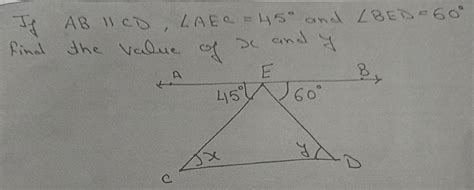 If AB || CD, ∠AEC = 45° and ∠BED = 60°
find the value of x and y
A E B
45° 60°
x y
C D